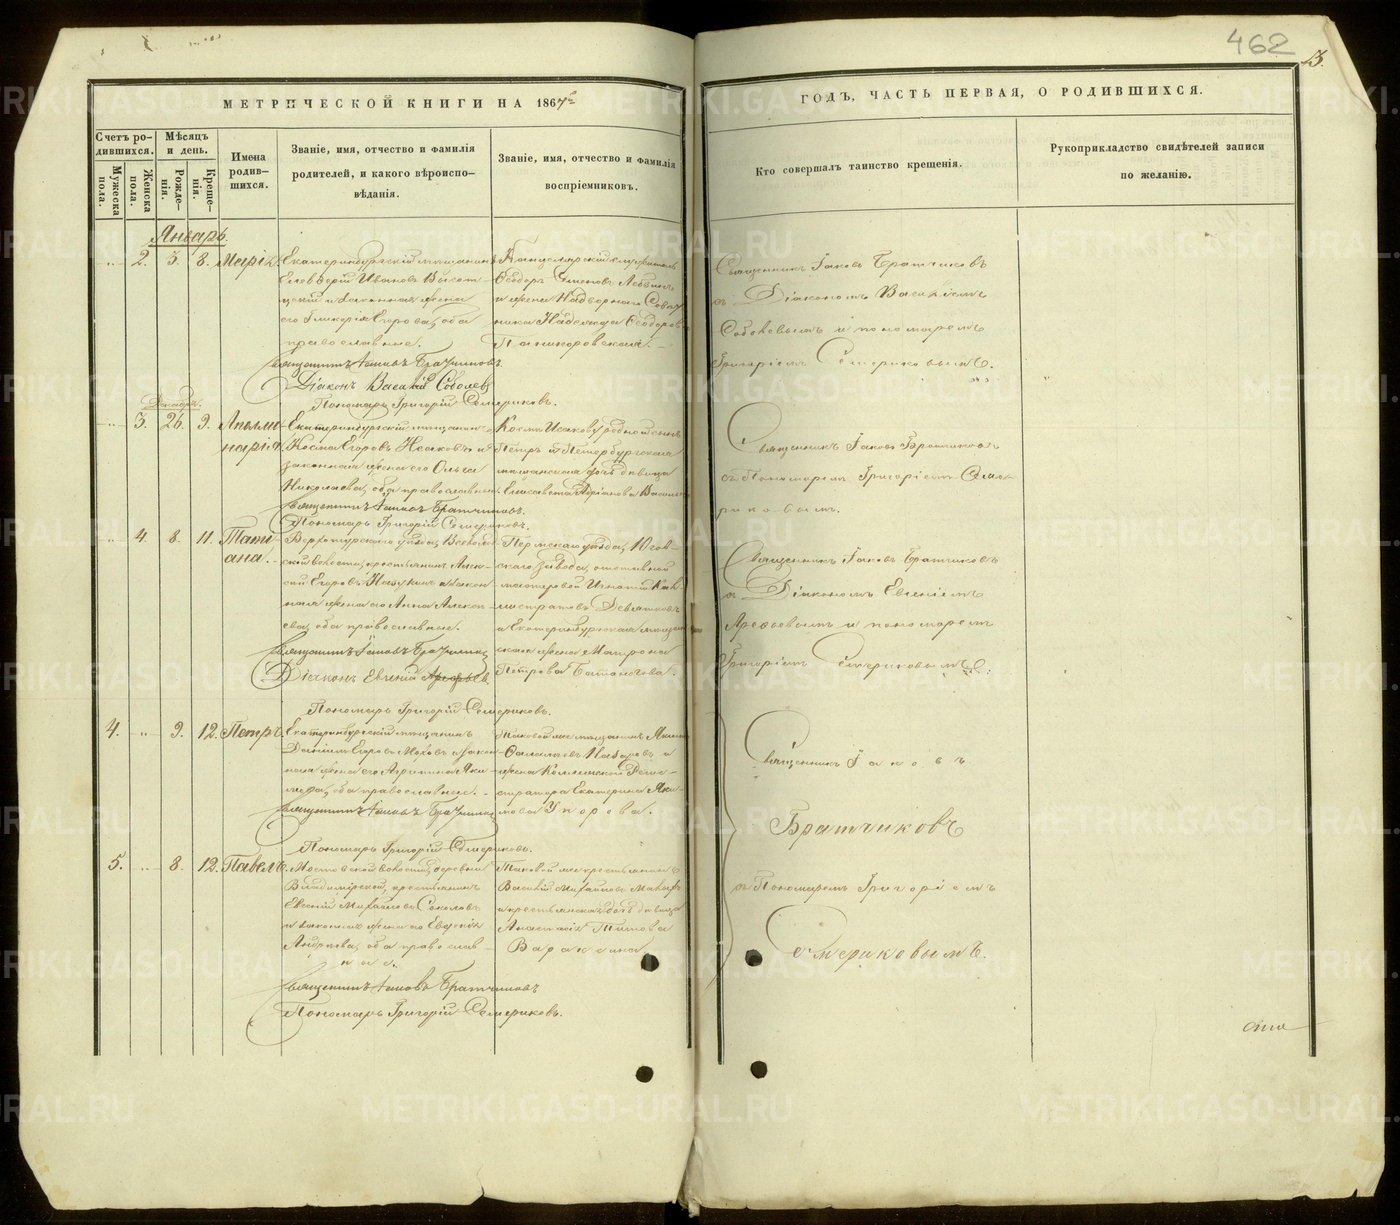 462
3.
МЕТРИЧЕСКОЙ КНИГИ НА 1867го
ГОДЪ, ЧАСТЬ ПЕРВАЯ, О РОДИВШИХСЯ.
Счетъ ро-
дившихся.
Мужеска
пола.
Женска
пола.
Мѣсяцъ
и день.
Рожде-
нія.
Креще-
нія.
Имена
родив-
шихся.
Званіе, имя, отчество и фамилія
родителей, и какого вѣроиспо-
вѣданія.
Званіе, имя, отчество и фамилія
воспріемниковъ.
Кто совершалъ таинство крещенія.
Рукоприкладство свидѣтелей записи
по желанію.
Январь.
2. 3. 8. Марія.
Екатеринбургскій мѣщанинъ
Елевферій Ивановъ
и законная жена
его Гликерія Егорова, оба
православные.
Священникъ Іаковъ Братчиковъ.
Діаконъ Василій Соболевъ
Пономарь Григорій Семериковъ.
Канцелярскій служитель
Ѳеодоръ Семеновъ
и жена Надворнаго Совѣт
ника Надежда Ѳеодоров
Священникъ Іаковъ Братчиковъ
съ Діакономъ Василіемъ
Соболевымъ и пономаремъ
Григоріемъ Семериковымъ.
Декабрь.
3. 26. 9. Аполли
нарія.
Екатеринбургскій мѣщанинъ
Косма Егоровъ Исаковъ и
законная жена его Ольга
Николаева, оба православные.
Священникъ Іаковъ Братчиковъ.
Пономарь Григорій Семериковъ.
Космы Исакова родной сынъ
Петръ и Петербургская
мѣщанская дочь дѣвица
Елисавета Адріанова
Священникъ Іаковъ Братчиковъ
съ Пономаремъ Григоріемъ Семе
риковымъ.
4. 8. 11. Тати
ана.
Верхотурскаго уѣзда,
ской волости, крестьянинъ Алек-
сѣй Егоровъ и закон
ная жена его Анна Алексѣ
ева, оба православные.
Священникъ Іаковъ Братчиковъ
Діаконъ Евгеній Арефьевъ.
Пономарь Григорій Семериковъ.
Пермскаго уѣзда, Югов-
скаго завода, отставной
мастеровой Игнатій Кал
листратовъ Девятковъ
и Екатеринбургская мѣщан
ская жена Матрона
Петрова
Священникъ Іаковъ Братчиковъ
съ Діакономъ Евгеніемъ
Арефьевымъ и пономаремъ
Григоріемъ Семериковымъ.
4. 9. 12. Петръ.
Екатеринбургскій мѣщанинъ
Даніилъ Егоровъ Моховъ и закон
ная жена его Агриппина Яки
мова, оба православные.
Священникъ Іаковъ Братчиковъ
Пономарь Григорій Семериковъ.
Таковой же мѣщанинъ
Назаровъ и
жена Коллежскаго Реги-
стратора Екатерина Яки
мова Упорова.
Священникъ Іаковъ
Братчиковъ
съ Пономаремъ Григоріемъ
Семериковымъ.
5. 8. 12. Павелъ.
Мостовской волости, деревни
Владимірской, крестьянинъ
Евгеній Михайловъ Соколовъ
и законная жена его Евдокія
Андреева, оба православ-
ные.
Священникъ Іаковъ Братчиковъ
Пономарь Григорій Семериковъ.
Таковой же крестьянинъ
Василій Михайловъ
и крестьянская дочь дѣвица
Анастасія Титова
Варакина